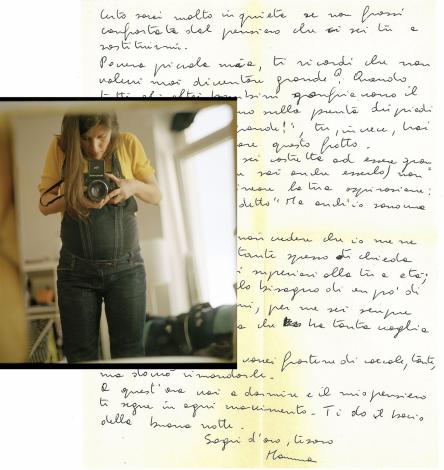 Certo sarei molto inquieta se non fossi
confortata dal pensiero che ci sei tu a
sostituirmi.
Povera piccola mia, ti ricordi che non
volevi mai diventare grande? Quando
tutti gli altri bambini gonfiavano il
no sulla punta dei piedi
ande!", tu, invece, hai
are questo fatto.
sei costretta ad essere gran
sai anche esserlo) non
la tua aspirazione:
detto "Ma anch'io sono una
non credere che io me ne
tante spesso ti chieda
superiori alla tua età;
lo bisogno di un po' di
per me sei sempre
a che ha tanta voglia
vorrei fartene di coccole, tante,
ma dovrò rimandarle.
A quest'ora vai a dormire e il mio pensiero
ti segue in ogni movimento. Ti do il bacio
della buona notte.
Sogni d'oro, tesoro
Mamma